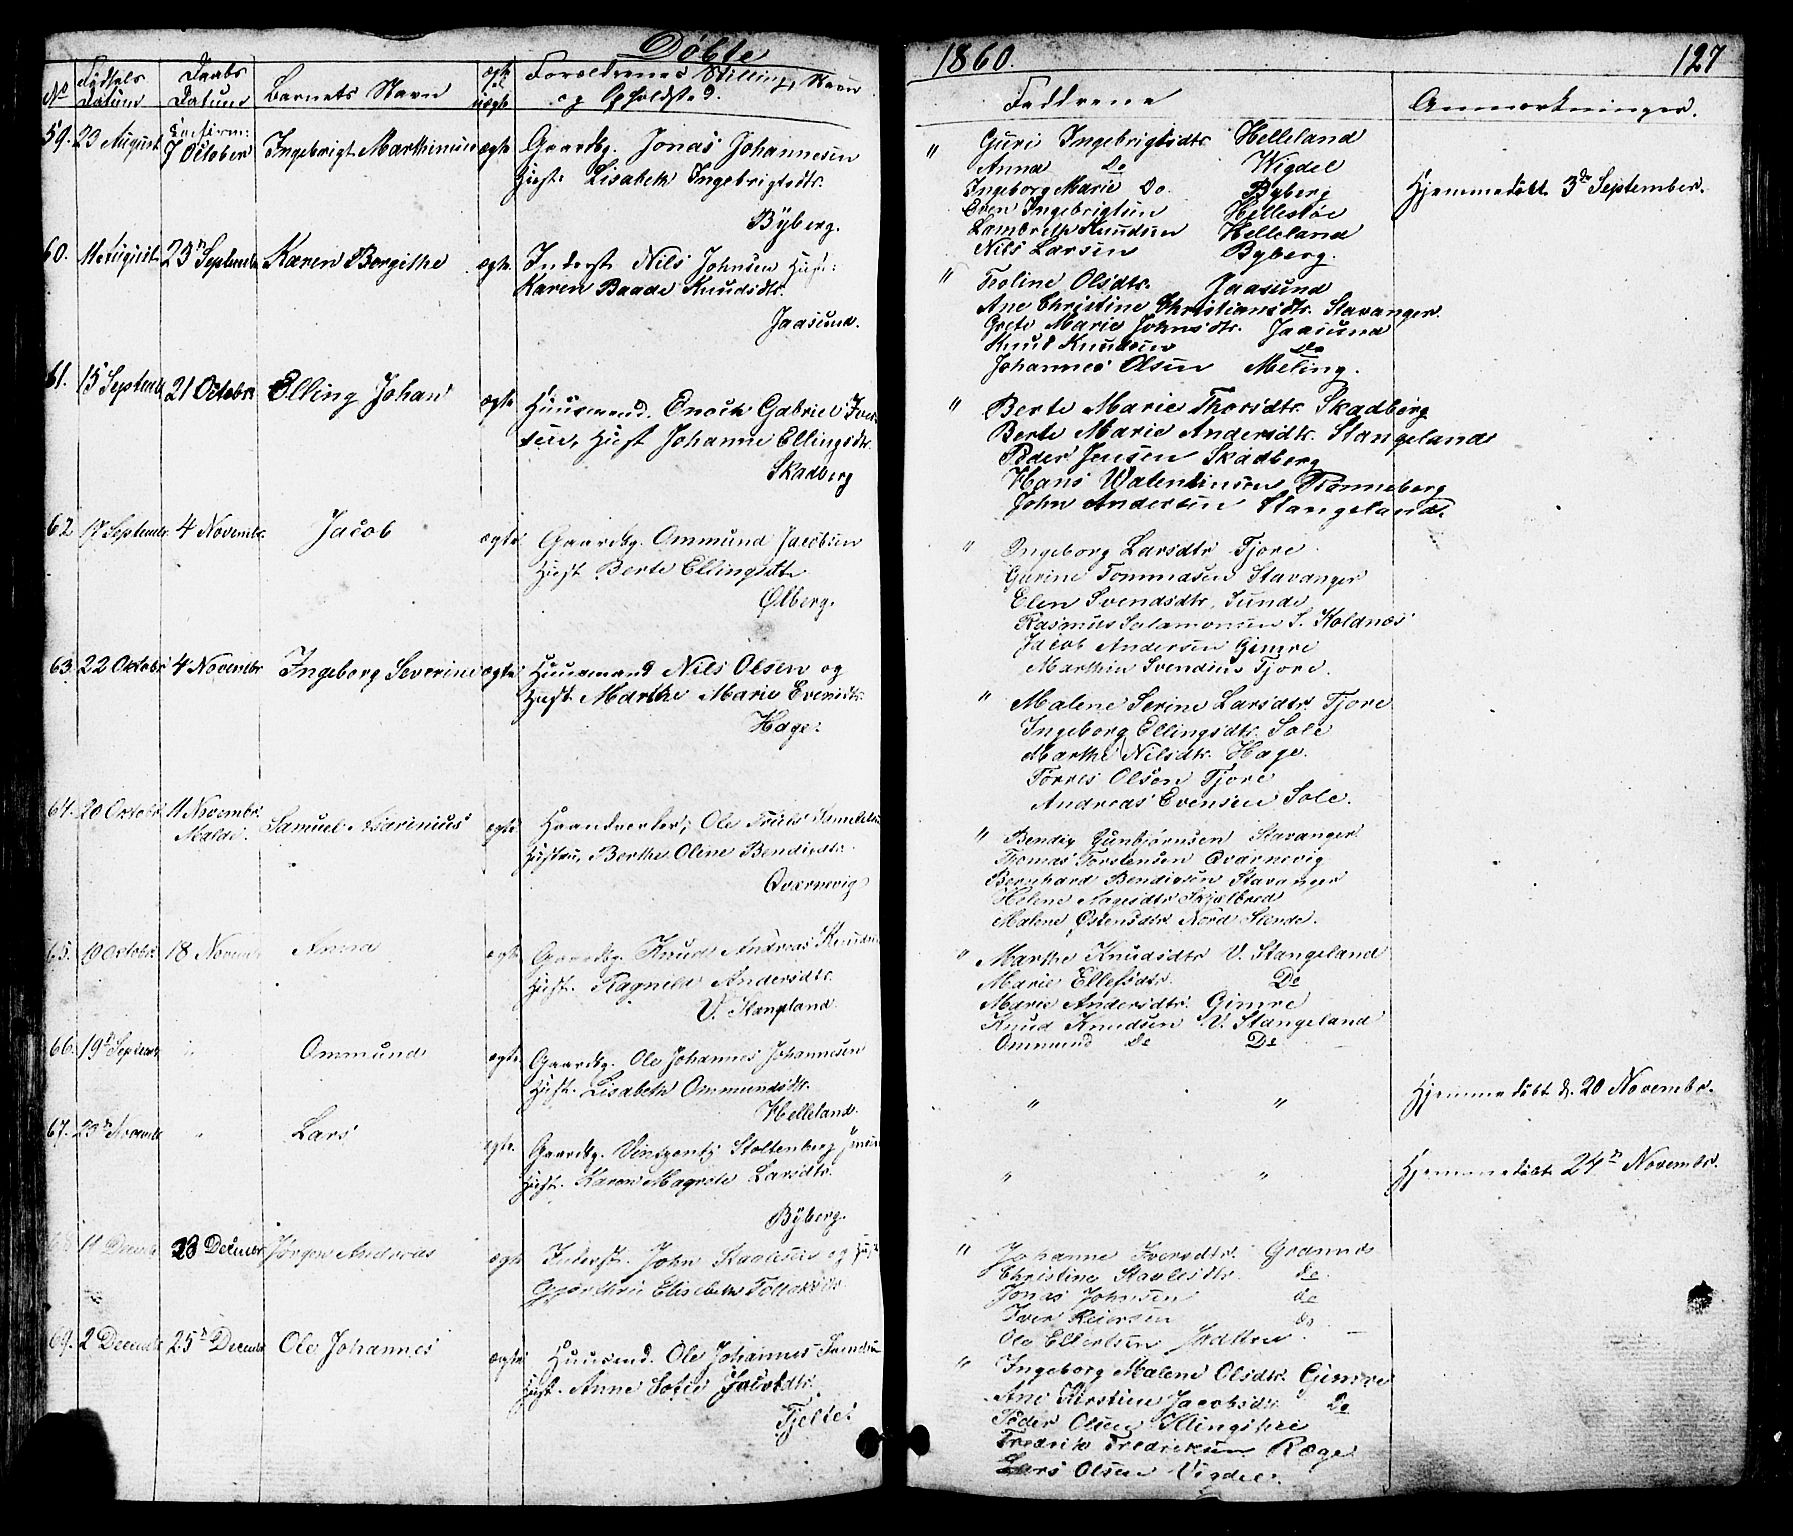 Döbte
1860.
127
No
Födsels Datum
Daabs Datum
Barnets Navn
ægte el uægte
Forældrenes Stilling, Navn
og Opholdsted.
Faddrene
Anmærkninger.
59. 23 August
Confirm:
7 October
Ingebrigt Marthinus
ægte
Gaardbg. Jonas Johannesen
Hust. Lisabeth Ingebrigtsdtr.
Byberg.
" Guri Ingebrigtsdtr Helleland
Anna Do Wigdel
Ingeborg Marie Do. Byberg
Even Ingebrigtsen Hellestöe
Lambret Knudsen Helleland
Nils Larsen Byberg.
Hjemmedöbt 3de September.
60. 11 August 23n Septembr Karen Börgithe ægte
Inderst Nils Johnsen Hust:
Karen Baade Knudsdtr.
Jaasund.
" Troline Olsdtr. Jaasund
Ane Christine Christiansdtr. Stavanger.
Grete Marie Johnsdtr. Jaasund
Knud Knudsen Do
Johannes Olsen Meling.
61. 15 Septembr 21 Octobr Elling Johan ægte
Huusmand. Enoch Gabriel Iver-
sen, Hust Johanne Ellingsdtr.
Skadberg
" Berte Marie Thorsdtr. Skadberg
Berte Marie Andersdtr. Stangeland
Peder Jensen Skadberg
Hans Walentinsen Tranneberg
John Andersen Stangeland.
62 17 Septembr 4 Novembr. Jacob ægte
Gaardbg. Ommund Jacobsen
Hust Berte Ellingsdtr
Ølberg.
" Ingeborg Larsdtr Tjore.
Gurine Tommasen Stavanger
Elen Svendsdtr. Sunde
Rasmus Salamonsen S. Koldnæs
Jacob Andersen Gimre
Marthin Svendsen Tjore.
63. 22 Oktobr 4 Novembr Ingeborg Severine ægte
Huusmand Nils Olsen og
Hust. Marthe Marie Evensdtr.
Hage.
" Malene Serine Larsdtr. Tjore
Ingeborg Ellingsdtr. Sole
Marthe Nilsdtr. Hage.
Torres Olsen Tjore
Andreas Evensen Sole.
64. 20 Octobr 11 Novembr. Malde. Samuel Asarinius ægte
Haandverker, Ole Truls Samuelsen
Hustru, Berthe Oline Bendixdtr.
Qvernevig
" Bendix Gunbjörnsen Stavanger
Thomas Torstensen Qvernevig
Bernhard Bendixsen Stavanger
Helene Aagesdtr. Skjælbred
Malene Østensdtr. Nord Sunde.
65. 10 Octobr. 18 Novembr Anna ægte
Gaardbg. Knud Andreas Knudsen
Hust. Ragnild Andersdtr.
V. Stangeland
" Marthe Knudsdtr V. Stangeland
Marie Ellefsdtr. Do
Marie Andersdtr. Gimre
Knud Knudsen V. Stangeland
Ommund do Do
66. 19d Septembr " Ommund ægte
Gaardbg. Ole Johannes Johannesen
Hust. Lisabeth Ommundsdtr.
Helleland.
" "
Hjemmedöbt d. 20 Novembr.
67. 23n Novembr " Lars ægte.
Gaardbg. Vinszentz Stoltenberg Jensen
Hust. Karen Magrete Larsdtr.
Byberg.
" "
Hjemmedöbt 24n Novembr.
68. 11 Decembr 23 Decembr Jørgen Andreas ægte
Inderst. John Staalesen og Hust
Elisabeth
" Johanne Iversdtr. Grannes
Christine Staalesdtr. do
Jonas Johnsen do
Iver Reiersen do
Ole Ellertsen Jaatten.
69. 2 Decembr 25d Decembr Ole Johannes ægte
Huusmd. Ole Johannes Svendsen
Hust. Anne Sofie Jacobdtr.
Tjelte.
" Ingeborg Malene Olsdtr. Gimre
Ane Kirstine Jacobsdtr. Do
Peder Olsen
Fredrik Fredriksen Ræge
Lars Olsen Vigdel.